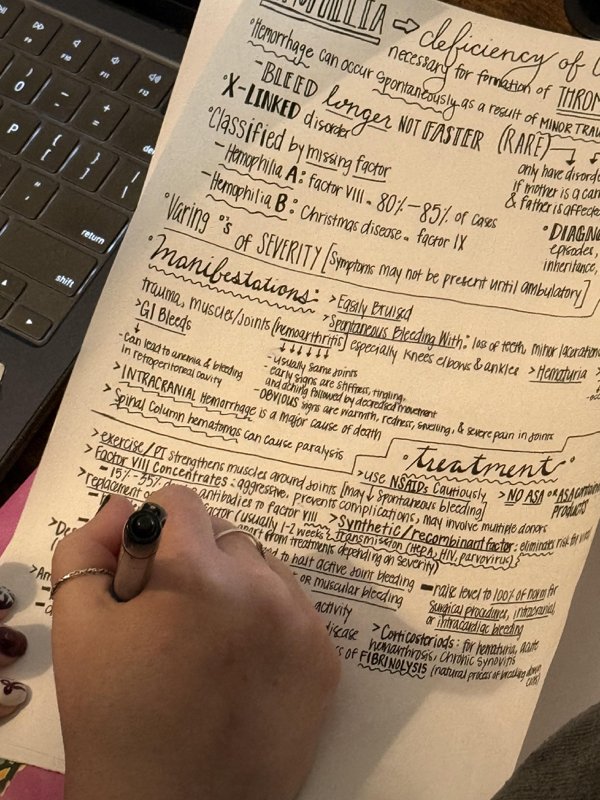 ⇒ deficiency of
necessary for formation of THROM
°Hemorrhage can occur spontaneously as a result of MINOR TRAU
-BLEED longer NOT FASTER (RARE)
°X-LINKED disorder
only have disord
if mother is a car
& father is affecte
°Classified by missing factor
-Hemophilia A: factor VIII - 80%-85% of cases
-Hemophilia B: Christmas disease - factor IX
°DIAGN
episodes,
inheritance,
°Varing °'s of SEVERITY [Symptoms may not be present until ambulatory]
°Manifestations:
>Easily Bruised
>Spontaneous Bleeding With: loss of teeth, minor laceration
trauma, muscles/Joints [hemoarthritis] especially knees elbows & ankles >Hematuria >
>GI Bleeds
-can lead to anemia & bleeding
in retroperitoneal cavity
-usually same joints
-early signs are stiffness, tingling,
and aching followed by decreased movement
-OBVIOUS signs are warmth, redness, swelling, & severe pain in joints
>INTRACRANIAL Hemorrhage is a major cause of death
>Spinal Column hematomas can cause paralysis
°treatment
>exercise/PT strengthens muscles around Joints [may ↓ Spontaneous bleeding]
>use NSAIDs Cautiously, >NO ASA or ASA contain
products
>Factor VIII Concentrates: aggressive, prevents complications, may involve multiple donors
-15%-35% antibodies to factor VIII
>Synthetic/recombinant factor: eliminates risk for viral
Transmission (HepA, HIV, parvovirus)
replacment factor (usually 1-2 weeks
apart from treatments depending on severity)
to halt active Joint bleeding
or muscular bleeding
-raise level to 100% of norm for
surgical procedures, intracranial
or intracardiac bleeding
activity
disease
>Corticosteriods: for hematuria, acute
hemarthrosis, Chronic Synovitis
of FIBRINOLYSIS (natural process of breaking down
return
shift